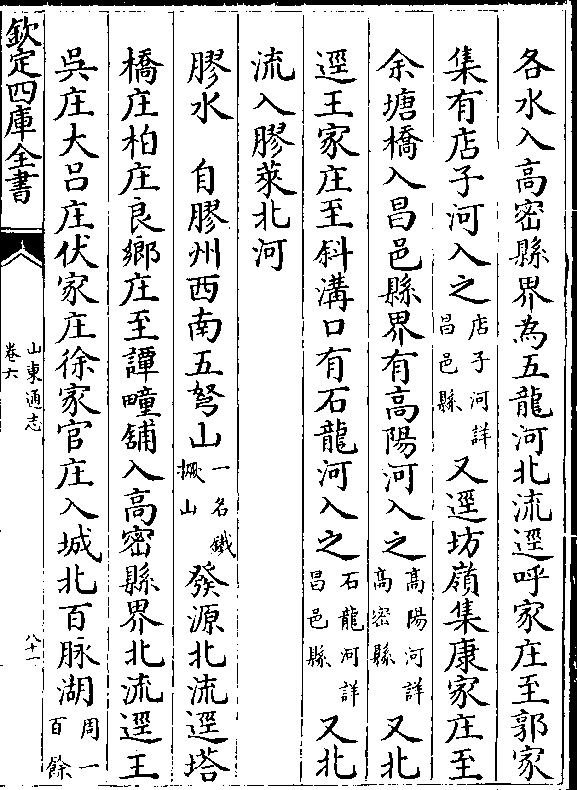 各水入高密縣界為五龍河北流逕呼家庄至郭家
集有店子河入之店子河詳昌邑縣又逕坊嶺集康家庄至
余塘橋入昌邑縣界有高陽河入之高陽河詳高密縣又北
逕王家庄至斜溝口有石龍河入之石龍河詳昌邑縣又北
流入膠萊北河
膠水　自膠州西南五弩山一名鐵橛山發源北流逕塔
橋庄柏庄良鄉庄至譚疃舖入高密縣界北流逕王
吳庄大吕庄伏家庄徐家官庄入城北百脉湖周一百餘
欽定四庫全書
山東通志
卷六
八十一